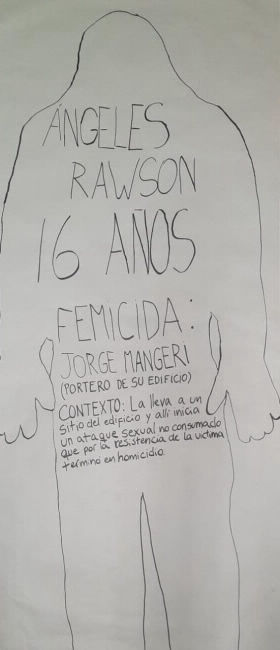 ÁNGELES
RAWSON
16 AÑOS
FEMICIDA:
JORGE MANGERI
(PORTERO DE SU EDIFICIO)
CONTEXTO: La lleva a un
sitio del edificio y allí inicia
un ataque sexual no consumado
que por la resistencia de la victima
termino en homicidio.